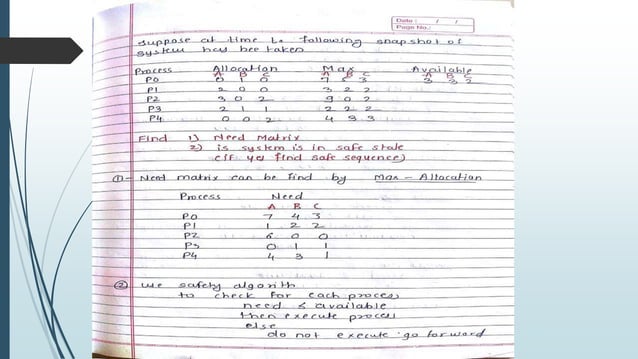 Date : / /
Page No.:
Suppose at time to following snap shot of
system has bee taken
Process Allocation Max Available
A B C A B C A B C
P0 0 1 0 7 5 3 3 3 2
P1 2 0 0 3 2 2
P2 3 0 2 9 0 2
P3 2 1 1 2 2 2
P4 0 0 2 4 3 3
Find 1) Need Matrix
2) is system is in safe state
(if yes find safe sequence)
①- Need matrix can be find by Max - Allocation
Process Need
A B C
P0 7 4 3
P1 1 2 2
P2 6 0 0
P3 0 1 1
P4 4 3 1
② use safety algorith
to check for each process
need ≤ available
then execute process
else
do not execute go forward